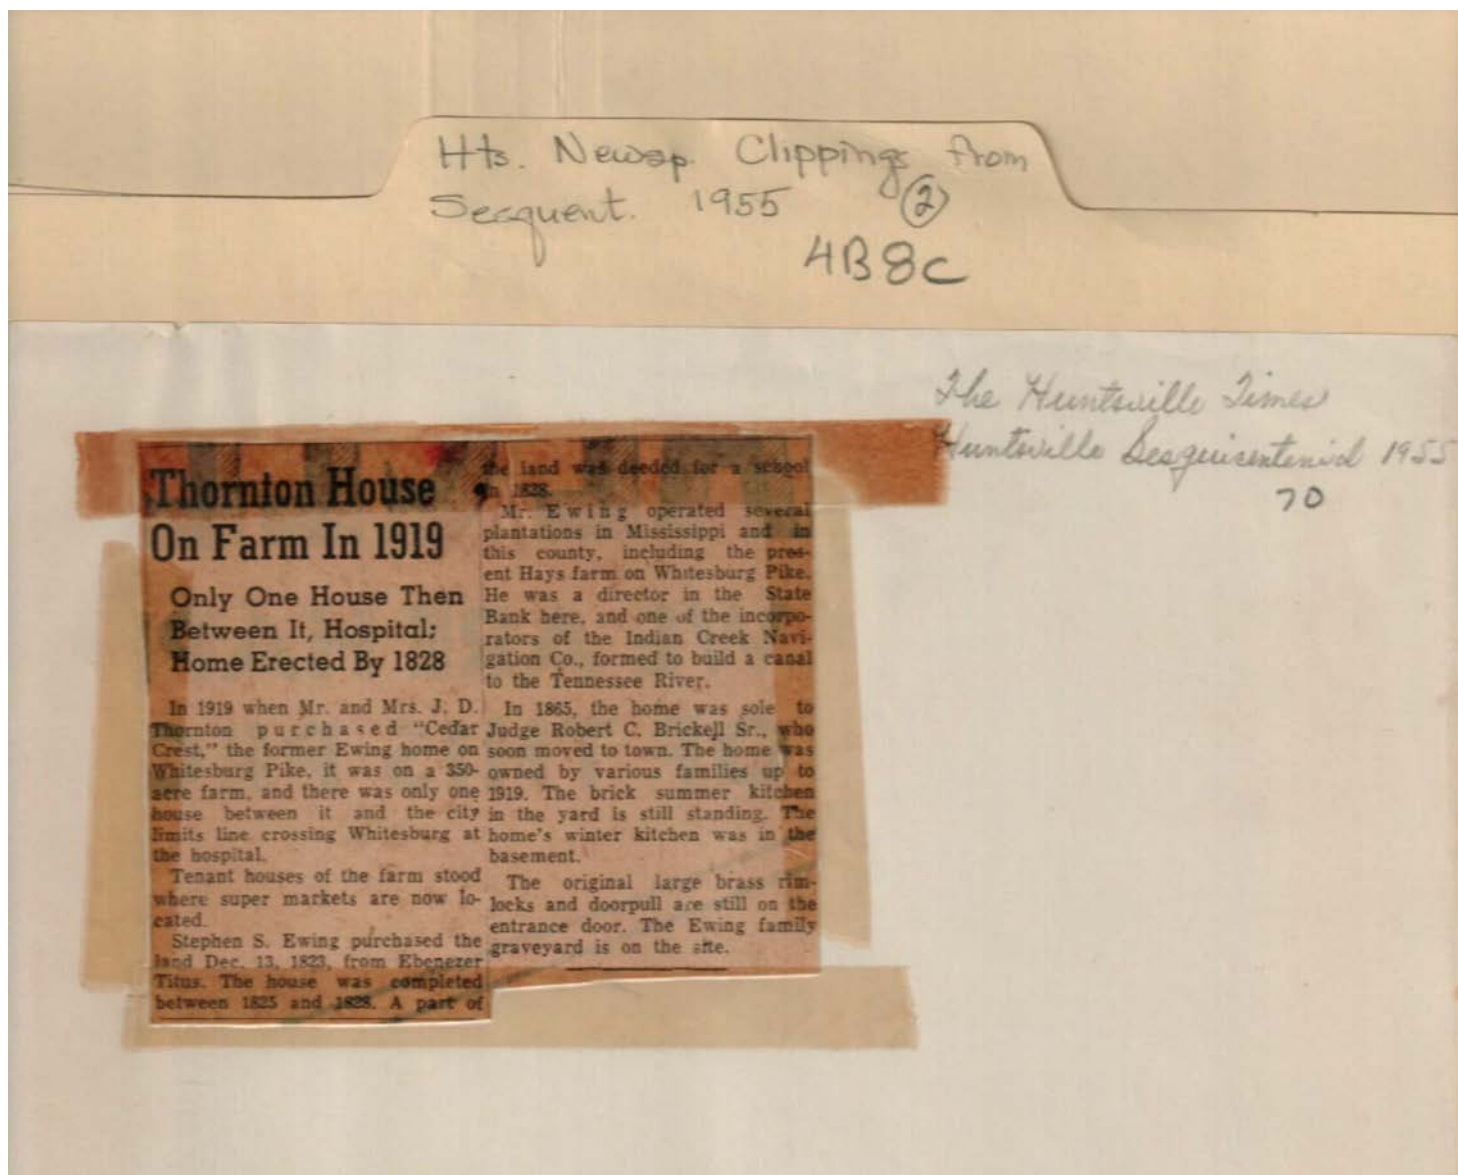 Hts. Newsp. Clippings from
Sesquent. 1955 ②
4B8C
The Huntsville Times
Huntsville Sesquicentenial 1955
70
Thornton House
On Farm In 1919
Only One House Then
Between It, Hospital;
Home Erected By 1828
In 1919 when Mr. and Mrs. J. D.
Thornton purchased "Cedar
Crest," the former Ewing home on
Whitesburg Pike, it was on a 350-
acre farm, and there was only one
house between it and the city
limits line crossing Whitesburg at
the hospital.
Tenant houses of the farm stood
where super markets are now lo-
cated.
Stephen S. Ewing purchased the
land Dec. 13, 1823, from Ebenezer
Titus. The house was completed
between 1825 and 1828. A part of
the land was deeded for a school
in 1828.
Mr. Ewing operated several
plantations in Mississippi and in
this county, including the pres-
ent Hays farm on Whitesburg Pike.
He was a director in the State
Bank here, and one of the incorpo-
rators of the Indian Creek Navi-
gation Co., formed to build a canal
to the Tennessee River.
In 1865, the home was sole to
Judge Robert C. Brickell Sr., who
soon moved to town. The home was
owned by various families up to
1919. The brick summer kitchen
in the yard is still standing. The
home's winter kitchen was in the
basement.
The original large brass rim-
locks and doorpull are still on the
entrance door. The Ewing family
graveyard is on the site.